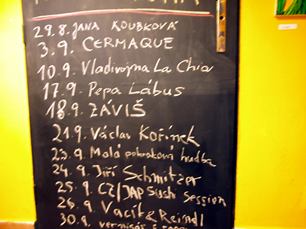 29.8. JANA KOUBKOVÁ
3.9. CERMAQUE
10.9. Vladivojna La Chia
17.9. Pepa Lábus
18.9. ZÁVIŠ
21.9. Václav Kořínek
23.9. Malá pokroková hudba
24.9. Jiří Schmitzer
25.9. CZ/JAP Sushi Session
26.9. Vacit & Reindl
30.9.